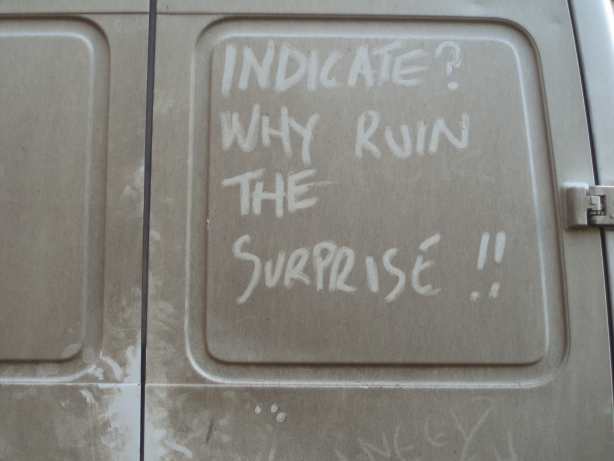 INDICATE?
WHY RUIN
THE
SURPRISE !!